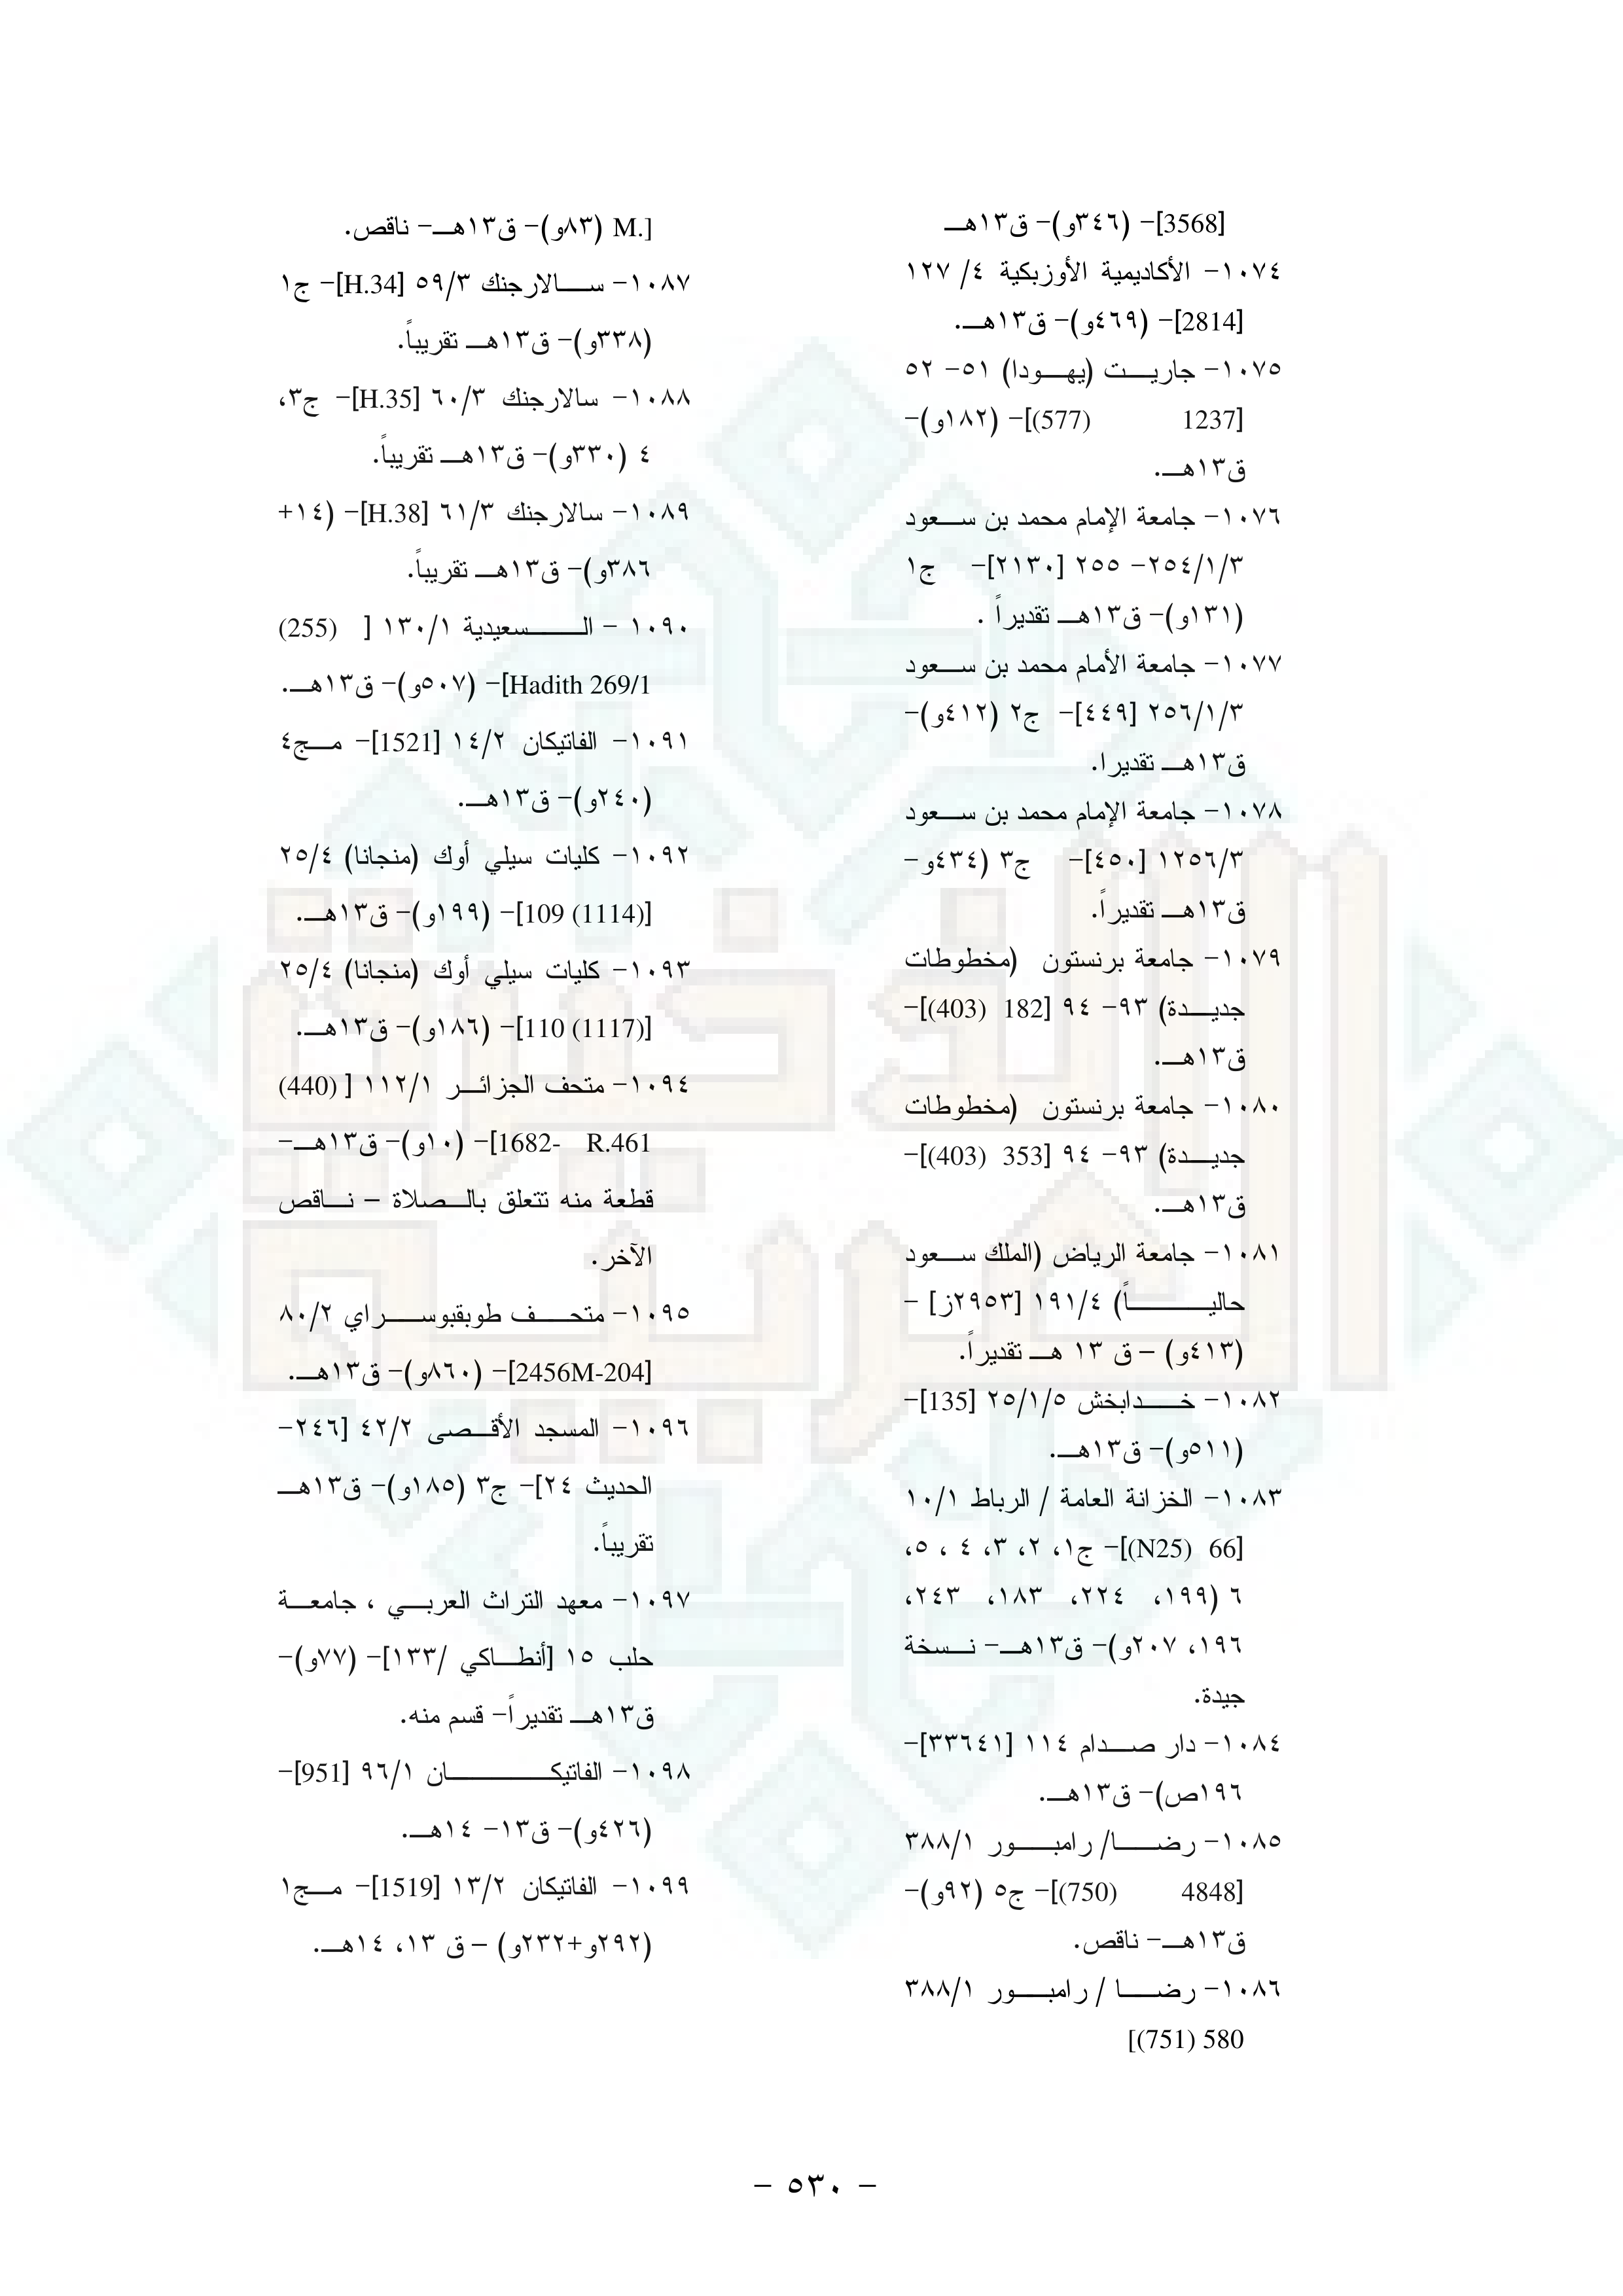 [3568]- (٣٤٦و)- ق١٣هـ
١٠٧٤- الأكاديمية الأوزبكية ٤/ ١٢٧
[2814]- (٤٦٩و)- ق١٣هـ.
١٠٧٥- جاريت (يهودا) ٥١- ٥٢
[1237 (577)]- (١٨٢و)-
ق١٣هـ.
١٠٧٦- جامعة الإمام محمد بن سعود
٢٥٤/١/٣- ٢٥٥ [٢١٣٠]- ج١
(١٣١و)- ق١٣هـ تقديراً .
١٠٧٧- جامعة الأمام محمد بن سعود
٢٥٦/١/٣ [٤٤٩]- ج٢ (٤١٢و)-
ق١٣هـ تقديرا.
١٠٧٨- جامعة الإمام محمد بن سعود
١٢٥٦/٣ [٤٥٠]- ج٣ (٤٣٤و-
ق١٣هـ تقديراً.
١٠٧٩- جامعة برنستون (مخطوطات
جديدة) ٩٣- ٩٤ [182 (403)]-
ق١٣هـ.
١٠٨٠- جامعة برنستون (مخطوطات
جديدة) ٩٣- ٩٤ [353 (403)]-
ق١٣هـ.
١٠٨١- جامعة الرياض (الملك سعود
حالياً) ١٩١/٤ [٢٩٥٣ز] -
(٤١٣و) – ق ١٣ هـ تقديراً.
١٠٨٢- خدابخش ٢٥/١/٥ [135]-
(٥١١و)- ق١٣هـ.
١٠٨٣- الخزانة العامة / الرباط ١٠/١
[66 (N25)]- ج١، ٢، ٣، ٤ ، ٥،
٦ (١٩٩، ٢٢٤، ١٨٣، ٢٤٣،
١٩٦، ٢٠٧و)- ق١٣هـ- نسخة
جيدة.
١٠٨٤- دار صدام ١١٤ [٣٣٦٤١]-
١٩٦ص)- ق١٣هـ.
١٠٨٥- رضا/ رامبور ٣٨٨/١
[4848 (750)]- ج٥ (٩٢و)-
ق١٣هـ- ناقص.
١٠٨٦- رضا / رامبور ٣٨٨/١
580 (751)]
[.M (٨٣و)- ق١٣هـ- ناقص.
١٠٨٧- سالارجنك ٥٩/٣ [H.34]- ج١
(٣٣٨و)- ق١٣هـ تقريباً.
١٠٨٨- سالارجنك ٦٠/٣ [H.35]- ج٣،
٤ (٣٣٠و)- ق١٣هـ تقريباً.
١٠٨٩- سالارجنك ٦١/٣ [H.38]- (١٤+
٣٨٦و)- ق١٣هـ تقريباً.
١٠٩٠ - السعيدية ١٣٠/١ [ (255)
Hadith 269/1]- (٥٠٧و)- ق١٣هـ.
١٠٩١- الفاتيكان ١٤/٢ [1521]- مج٤
(٢٤٠و)- ق١٣هـ.
١٠٩٢- كليات سيلي أوك (منجانا) ٢٥/٤
[109 (1114)]- (١٩٩و)- ق١٣هـ.
١٠٩٣- كليات سيلي أوك (منجانا) ٢٥/٤
[110 (1117)]- (١٨٦و)- ق١٣هـ.
١٠٩٤- متحف الجزائر ١١٢/١ [ (440)
1682- R.461]- (١٠و)- ق١٣هـ-
قطعة منه تتعلق بالصلاة – ناقص
الآخر.
١٠٩٥- متحف طوبقبوسراي ٨٠/٢
[2456M-204]- (٨٦٠و)- ق١٣هـ.
١٠٩٦- المسجد الأقصى ٤٢/٢ [٢٤٦-
الحديث ٢٤]- ج٣ (١٨٥و)- ق١٣هـ
تقريباً.
١٠٩٧- معهد التراث العربي ، جامعة
حلب ١٥ [أنطاكي /١٣٣]- (٧٧و)-
ق١٣هـ تقديراً- قسم منه.
١٠٩٨- الفاتيكان ٩٦/١ [951]-
(٤٢٦و)- ق١٣- ١٤هـ.
١٠٩٩- الفاتيكان ١٣/٢ [1519]- مج١
(٢٩٢و+٢٣٢و) – ق ١٣، ١٤هـ.
- ٥٣٠ -